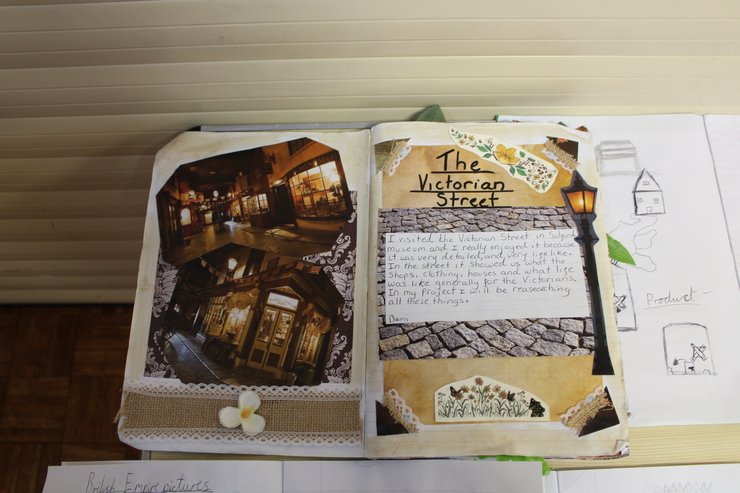 The
Victorian
Street
I visited the Victorian Street in Salford
museum and I really enjoyed it because
it was very detailed and very life like.
In the street it showed us what the
shops, clothing, houses and what life
was like generally for the Victorians.
In my project I will be reasearching
all these things.
Demi
Product -
British Empire pictures